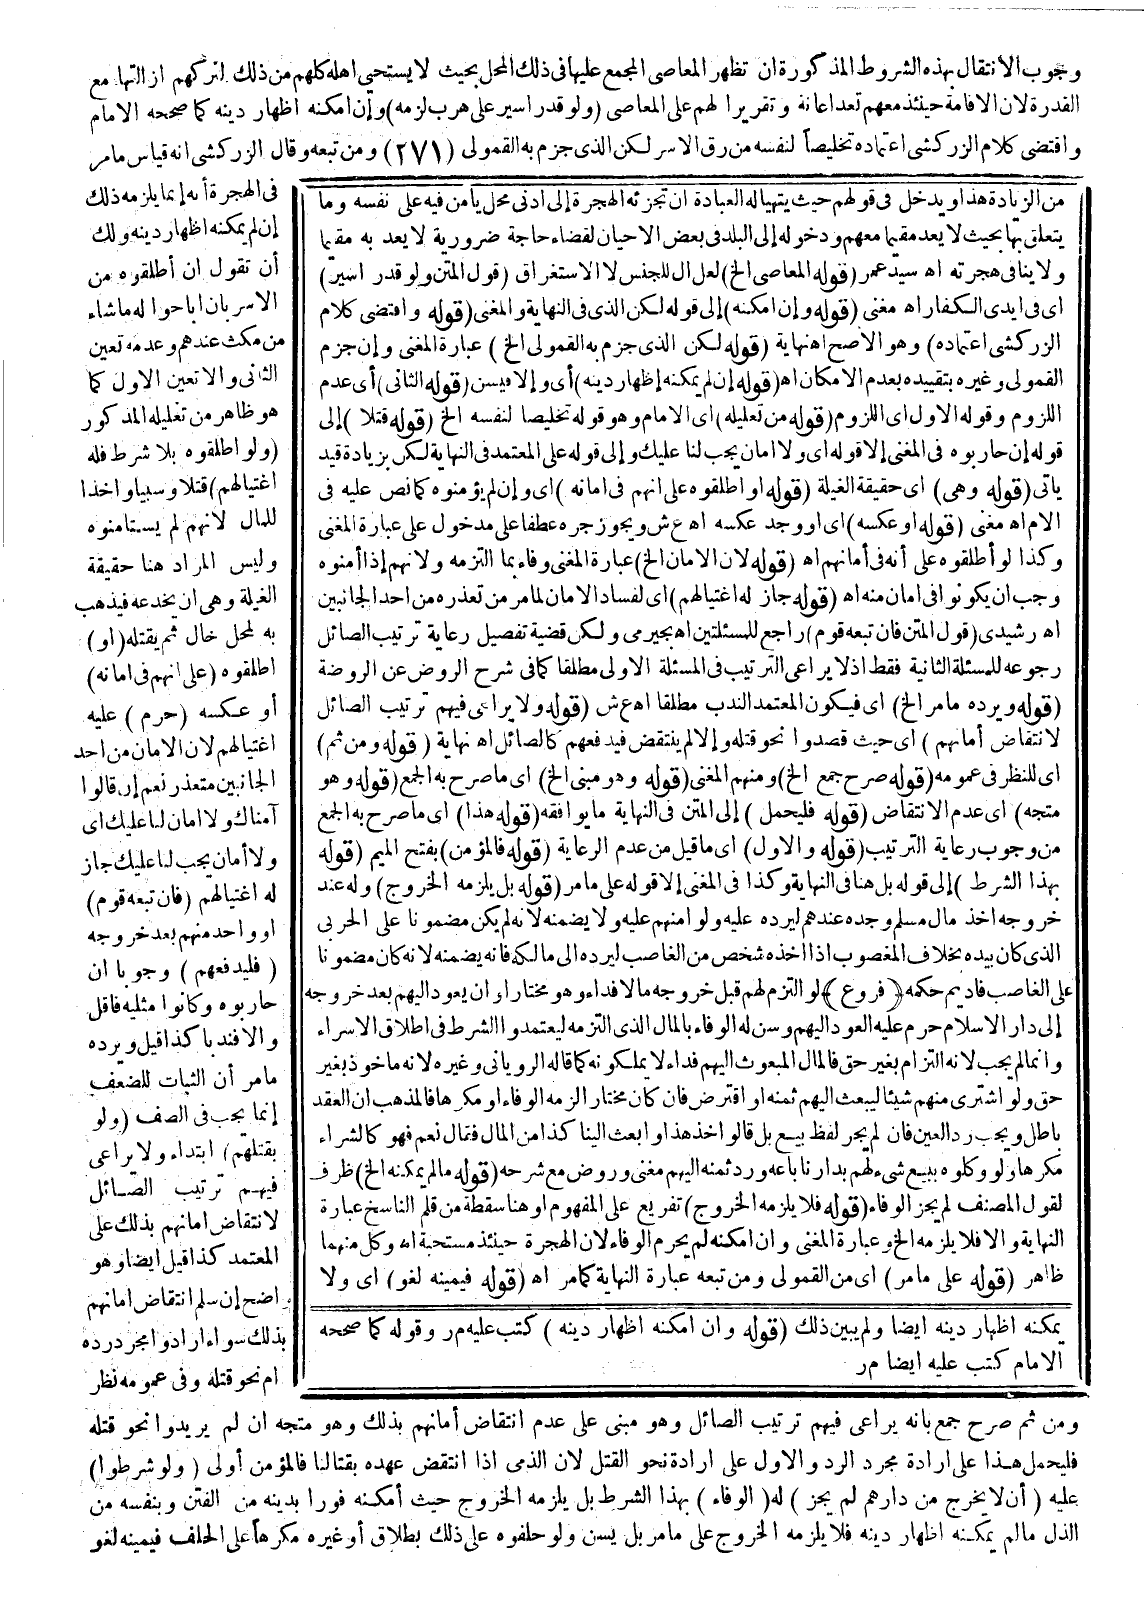 وجوب الانتقال بهذه الشروط المذكورة ان تظهر المعاصى المجمع عليها فى ذلك المحل بحيث لا يستحيى اهله كلهم من ذلك لتركهم ازالتها مع
القدرة لان الاقامة حينئذ معهم تعد اعانة و تقريرا لهم على المعاصى (ولو قدر اسير على هرب لزمه) وإن امكنه اظهار دينه كما صححه الامام
واقتضى كلام الزركشى اعتماده تخليصاً لنفسه من رق الاسر لكن الذى جزم به القمولى (٢٧١) ومن تبعه وقال الزركشى انه قياس مامر
فى الهجرة أنه إنما يلزمه ذلك
إن لم يمكنه اظهار دينه ولك
أن تقول ان أطلقوه من
الاسر بان اباحوا له ماشاء
من مكث عندهم وعدمه تعين
الثانى والا تعين الاول كما
هو ظاهر من تعليله المذكور
(ولو اطلقوه بلا شرط فله
اغتيالهم) قتلا وسبيا واخذا
للمال لانهم لم يستامنوه
وليس المراد هنا حقيقة
الغيلة وهى ان يخدعه فيذهب
به لمحل خال ثم يقتله (او)
اطلقوه (على انهم فى امانه)
أو عكسه (حرم) عليه
اغتيالهم لان الامان من احد
الجانبين متعذر نعم إن قالوا
آمناك ولا امان لنا عليك اى
ولا أمان يجب لنا عليك جاز
له اغتيالهم (فان تبعه قوم)
او واحد منهم بعد خروجه
(فليدفعهم) وجوبا ان
حاربوه وكانوا مثليه فاقل
والا فندبا كذا قيل ويرده
مامر أن الثبات للضعف
إنما يجب فى الصف (ولو
بقتلهم) ابتداء ولا يراعى
فيهم ترتيب الصائل
لانتقاض امانهم بذلك على
المعتمد كذا قيل ايضا وهو
اضح إن سلم انتقاض امانهم
بذلك سواء ارادوا مجرد رده
ام نحو قتله وفى عمومه نظر
من الزيادة هذا ويدخل فى قولهم حيث يتهيا له العبادة ان تجزئه الهجرة إلى ادنى محل يأمن فيه على نفسه وما
يتعلق بها بحيث لا يعد مقيما معهم ودخوله إلى البلد فى بعض الاحيان لقضاء حاجة ضرورية لا يعد به مقيما
ولا ينافى هجرته اه سيد عمر (قوله المعاصى الخ) لعل ال للجنس لا الاستغراق (قول المتن ولو قدر اسير)
اى فى ايدى الكفار اه مغنى (قوله وإن امكنه) إلى قوله لكن الذى فى النهاية والمغنى (قوله واقتضى كلام
الزركشى اعتماده) وهو الاصح اه نهاية (قوله لكن الذى جزم به القمولى الخ) عبارة المغنى وإن جزم
القمولى وغيره بتقييده بعدم الامكان اه (قوله إن لم يمكنه إظهار دينه) أى وإلا فيسن (قوله الثانى) أى عدم
اللزوم وقوله الاول اى اللزوم (قوله من تعليله) اى الامام وهو قوله تخليصا لنفسه الخ (قوله قتلا) إلى
قوله إن حاربوه فى المغنى إلا قوله اى ولا امان يجب لنا عليك وإلى قوله على المعتمد فى النهاية لكن بزيادة قيد
ياتى (قوله وهى) اى حقيقة الغيلة (قوله او اطلقوه على انهم فى امانه) اى وإن لم يؤمنوه كما نص عليه فى
الام اه مغنى (قوله او عكسه) اى او وجد عكسه اه ع ش ويجوز جره عطفا على مدخول على عبارة المغنى
وكذا لو أطلقوه على أنه فى أمانهم اه (قوله لان الامان الخ) عبارة المغنى وفاء بما التزمه ولانهم إذا أمنوه
وجب ان يكونوا فى امان منه اه (قوله جاز له اغتيالهم) اى لفساد الامان لمامر من تعذره من احد الجانبين
اه رشيدى (قول المتن فان تبعه قوم) راجع للمسئلتين اه بجيرمى ولكن قضية تفصيل رعاية ترتيب الصائل
رجوعه للمسئلة الثانية فقط اذ لا يراعى الترتيب فى المسئلة الاولى مطلقا كما فى شرح الروض عن الروضة
(قوله ويرده مامر الخ) اى فيكون المعتمد الندب مطلقا اه ع ش (قوله ولا يراعى فيهم ترتيب الصائل
لانتقاض أمانهم) اى حيث قصدوا نحو قتله وإلا لم ينتقض فيدفعهم كالصائل اه نهاية (قوله ومن ثم)
اى للنظر فى عمومه (قوله صرح جمع الخ) ومنهم المغنى (قوله وهو مبنى الخ) اى ماصرح به الجمع (قوله وهو
متجه) اى عدم الانتقاض (قوله فليحمل) إلى المتن فى النهاية ما يوافقه (قوله هذا) اى ماصرح به الجمع
من وجوب رعاية الترتيب (قوله والاول) اى ماقيل من عدم الرعاية (قوله فالمؤمن) بفتح الميم (قوله
بهذا الشرط) إلى قوله بل هنا فى النهاية وكذا فى المغنى إلا قوله على مامر (قوله بل يلزمه الخروج) وله عند
خروجه اخذ مال مسلم وجده عندهم ليرده عليه ولو امنهم عليه ولا يضمنه لانه لم يكن مضمونا على الحربى
الذى كان بيده بخلاف المغصوب اذا اخذه شخص من الغاصب ليرده الى مالكه فانه يضمنه لانه كان مضمونا
على الغاصب فاديم حكمه ﴿فروع﴾ لو التزم لهم قبل خروجه مالا فداء وهو مختار او ان يعود اليهم بعد خروجه
إلى دار الاسلام حرم عليه العود اليهم وسن له الوفاء بالمال الذى التزمه ليعتمدوا الشرط فى اطلاق الاسراء
وانما لم يجب لانه التزام بغير حق فالمال المبعوث اليهم فداء لا يملكونه كما قاله الرويانى وغيره لانه ماخوذ بغير
حق ولو اشترى منهم شيئا ليبعث اليهم ثمنه او اقترض فان كان مختارا لزمه الوفاء او مكرها فالمذهب ان العقد
باطل ويجب رد العين فان لم يجر لفظ بيع بل قالوا خذ هذا وابعث الينا كذا من المال فقال نعم فهو كالشراء
مكرها ولو وكلوه ببيع شىء لهم بدارنا باعه ورد ثمنه اليهم مغنى وروض مع شرحه (قوله مالم يمكنه الخ) ظرف
لقول المصنف لم يجز الوفاء (قوله فلا يلزمه الخروج) تفريع على المفهوم او هنا سقطة من قلم الناسخ عبارة
النهاية والا فلا يلزمه الخ وعبارة المغنى وان امكنه لم يحرم الوفاء لان الهجرة حينئذ مستحبة اه وكل منهما
ظاهر (قوله على مامر) اى من القمولى ومن تبعه عبارة النهاية كمامر اه (قوله فيمينه لغو) اى ولا
يمكنه اظهار دينه ايضا ولم يبين ذلك (قوله وان امكنه اظهار دينه) كتب عليه مر وقوله كما صححه
الامام كتب عليه ايضا مر
ومن ثم صرح جمع بانه يراعى فيهم ترتيب الصائل وهو مبنى على عدم انتقاض أمانهم بذلك وهو متجه ان لم يريدوا نحو قتله
فليحمل هذا على ارادة مجرد الرد والاول على ارادة نحو القتل لان الذمى اذا انتقض عهده بقتالنا فالمؤمن أولى (ولو شرطوا)
عليه (أن لا يخرج من دارهم لم يجز) له (الوفاء) بهذا الشرط بل يلزمه الخروج حيث أمكنه فورا بدينه من الفتن وبنفسه من
الذل مالم يمكنه اظهار دينه فلا يلزمه الخروج على مامر بل يسن ولو حلفوه على ذلك بطلاق أو غيره مكرهاً على الحلف فيمينه لغو